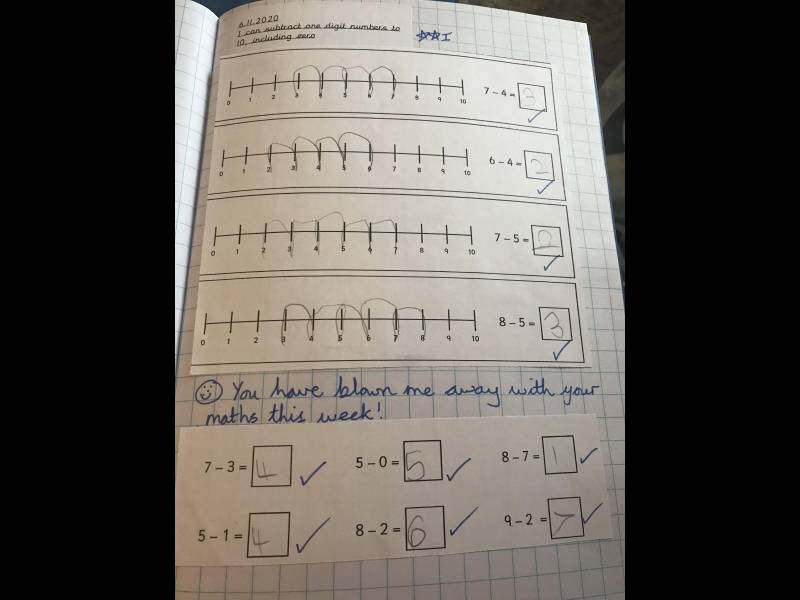 6.11.2020
I can subtract one digit numbers to
10, including zero
I
0 1 2 3 4 5 6 7 8 9 10
7 – 4 = 3
0 1 2 3 4 5 6 7 8 9 10
6 – 4 = 2
0 1 2 3 4 5 6 7 8 9 10
7 – 5 = 2
0 1 2 3 4 5 6 7 8 9 10
8 – 5 = 3
You have blown me away with your
maths this week!
7 – 3 = 4 5 – 0 = 5 8 – 7 = 1
5 – 1 = 4 8 – 2 = 6 9 – 2 = 7